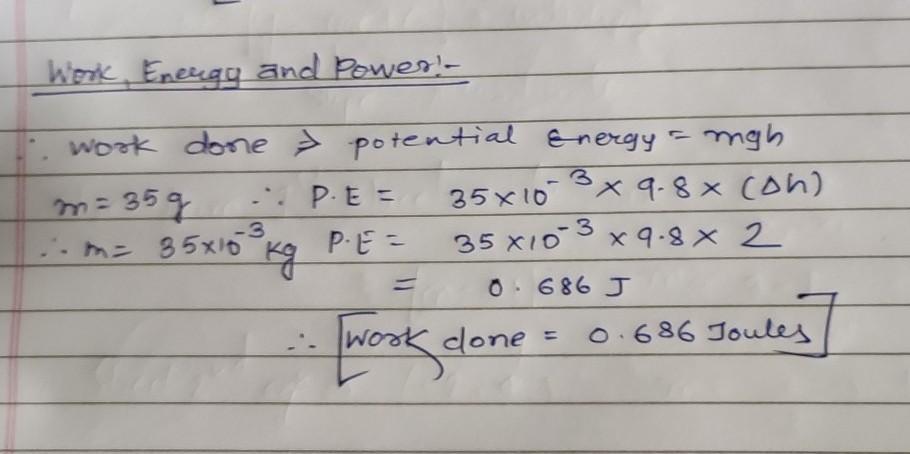 Work, Energy and Power:-
∴ work done ⇒ potential Energy = mgh
m = 35g ∴ P.E = 35×10⁻³ × 9.8 × (Δh)
∴ m = 35×10⁻³ kg P.E = 35×10⁻³ × 9.8 × 2
= 0.686 J
∴ [work done = 0.686 Joules]